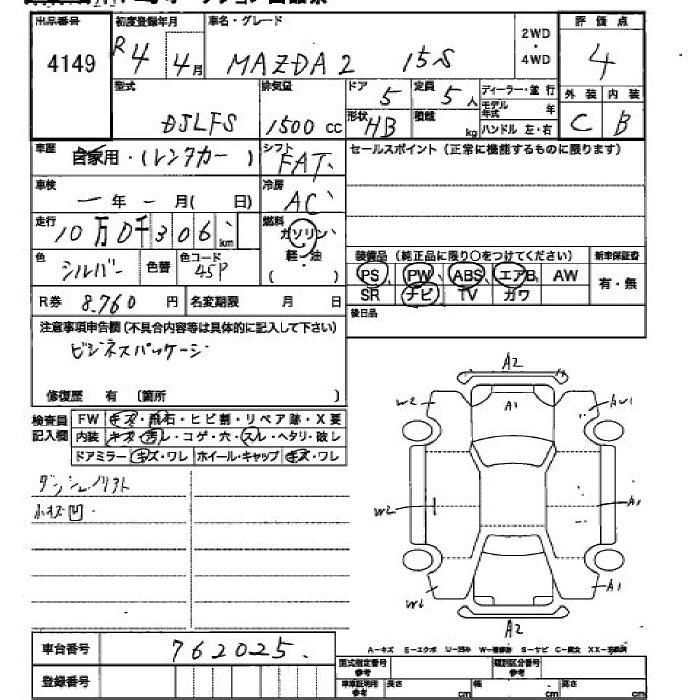 出品番号 初度登録年月 車名・グレード 2WD・4WD 評価点
4149 R4年 4月 MAZDA2 15S 4
型式 排気量 ドア 定員 ディーラー・並行 外装 内装
DJLFS 1500cc 5 5人 モデル年式 年 C B
形状 HB 積載 kg ハンドル 左・右
車歴 自家用・(レンタカー) シフト FAT セールスポイント(正常に機能するものに限ります)
車検 ー年ー月( 日) 冷房 AC
走行 10万0千306km 燃料 ガソリン・軽・油 ( )
色 シルバー 色替 色コード 45P
装備品(純正品に限り○をつけてください) 新車保証書
PS PW ABS エアB AW 有・無
SR ナビ TV カワ
R券 8,760円 名変期限 月 日 後日品
注意事項申告欄(不具合内容等は具体的に記入して下さい)
ビジネスパッケージ
修復歴 有 (箇所 )
検査員記入欄 FW キズ・飛石・ヒビ割・リペア跡・X要
内装 キズ・汚レ・コゲ・穴・スレ・ヘタリ・破レ
ドアミラー キズ・ワレ ホイール・キャップ キズ・ワレ
小キズ凹
A2
W2 A1 AW1
W2 A1
A1
A2
車台番号 762025
登録番号
A-キズ E-エクボ U-凹み S-サビ C-腐食
型式指定番号 参考 類別区分番号 参考
車庫証明用 参考 長さ cm 幅 cm 高さ cm